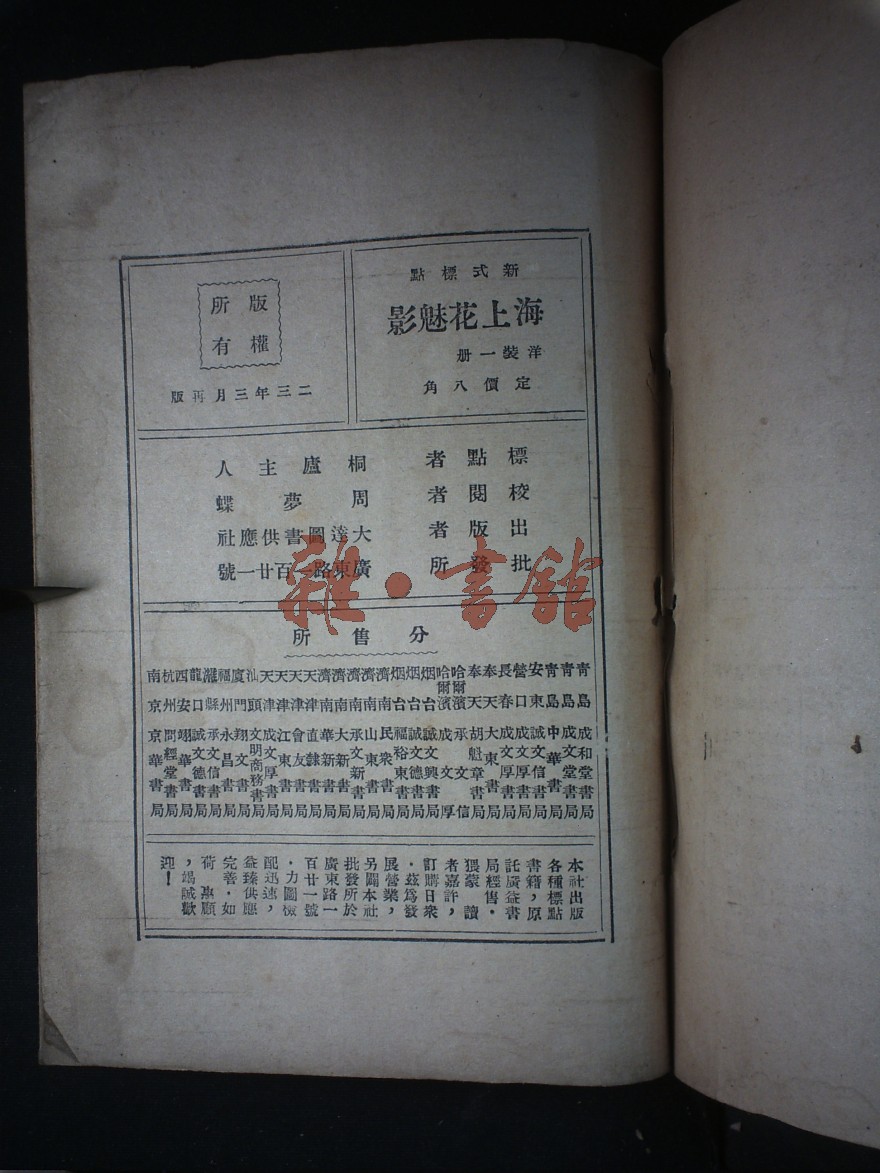 新式標點
海上花魅影
洋裝一册
定價八角
版權
所有
二三年三月再版
標點者 桐廬主人
校閱者 周夢蝶
出版者 大達圖書供應社
批發所 廣東路一百廿一號
分售所
青島 成和堂書局
青島 成文堂書局
青島 中華書局
安東 誠文信書局
營口 成文厚書局
長春 成文厚書局
奉天 大東書局
奉天 胡魁章書局
哈爾濱 承文信
哈爾濱 成文厚
烟台 誠文興書局
烟台 誠文德書局
烟台 福裕東書局
濟南 民衆書局
濟南 山東書局
濟南 承文新書局
濟南 大新書局
濟南 華新書局
天津 直隸書局
天津 會友書局
天津 江東書局
天津 成文厚書局
汕頭 文明商務書局
廈門 翔文書局
福州 永昌書局
濰縣 承文信書局
龍口 誠文德書局
西安 翊華書局
杭州 問經堂書局
南京 京華書局
本社出版
各種標點
書籍，原
託廣益書
局經售．
猥蒙 讀
者嘉許，
訂購日衆
．茲爲發
展營業，
另闢本社
批發所於
廣東路一
百廿一號
．力圖檢
配迅速，
益臻供應
完善．如
荷 惠顧
，竭誠歡
迎！
雜·書館